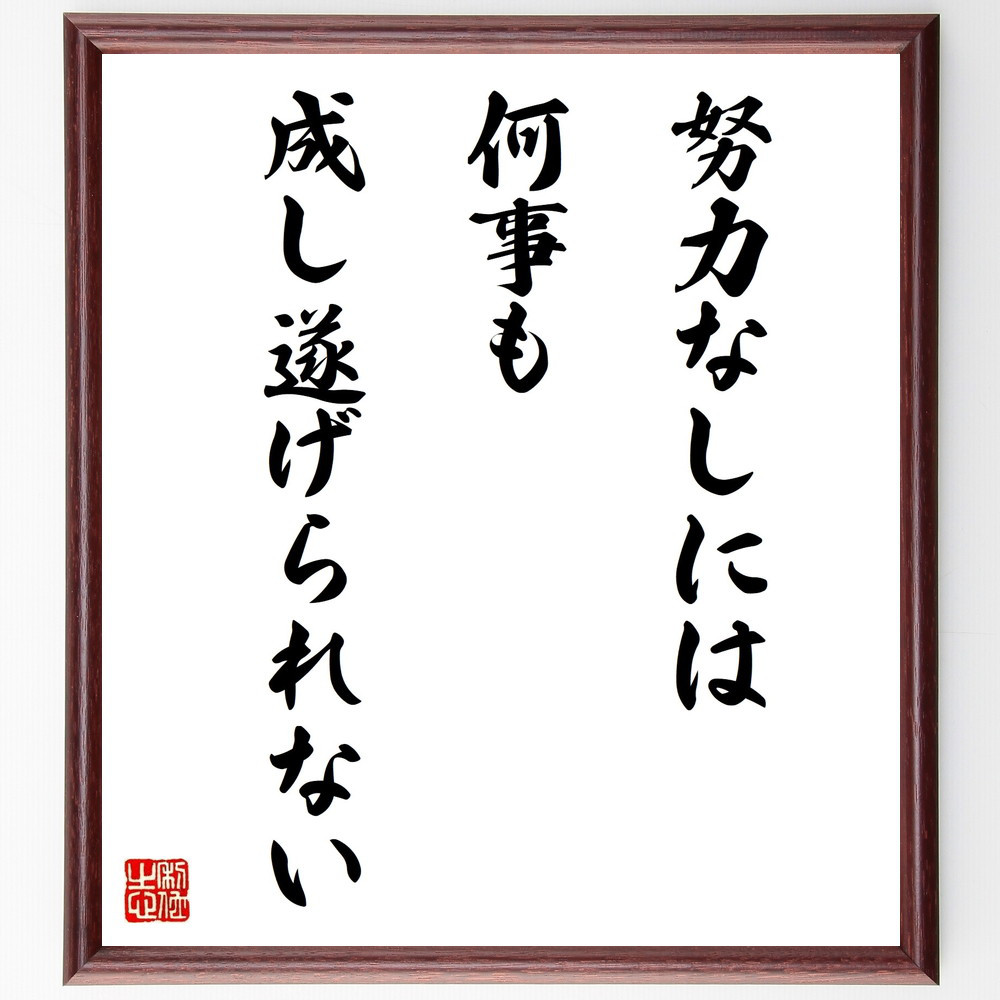 努力なしには
何事も
成し遂げられない